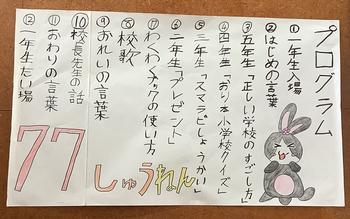 プログラム
①一年生入場
②はじめの言葉
③五年生「正しい学校のすごし方」
④四年生「おりホ小学校クイズ」
⑤三年生「スマラビしょうかい」
⑥二年生「プレゼント」
⑦わくわくブックの使い方
⑧校歌
⑨おれいの言葉
⑩校長先生の話
⑪おわりの言葉
⑫一年生たい場
77しゅうねん